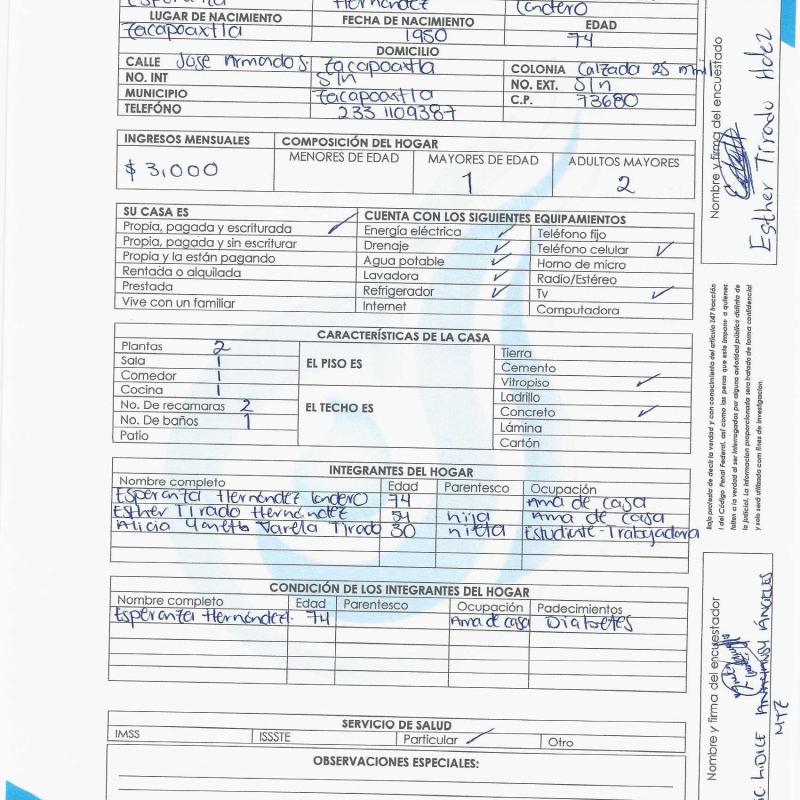 Esperanza Hernández Landero
LUGAR DE NACIMIENTO FECHA DE NACIMIENTO EDAD
Zacapoaxtla 1950 74
DOMICILIO
CALLE Jose Armando S. Zacapoaxtla COLONIA Calzada 25 mil
NO. INT S/n NO. EXT. S/n
MUNICIPIO Zacapoaxtla C.P. 73680
TELEFÓNO 233 1109387
INGRESOS MENSUALES COMPOSICIÓN DEL HOGAR
$ 3,000 MENORES DE EDAD MAYORES DE EDAD ADULTOS MAYORES
1 2
SU CASA ES CUENTA CON LOS SIGUIENTES EQUIPAMIENTOS
Propia, pagada y escriturada ✓ Energía eléctrica ✓ Teléfono fijo
Propia, pagada y sin escriturar Drenaje ✓ Teléfono celular ✓
Propia y la están pagando Agua potable ✓ Horno de micro
Rentada o alquilada Lavadora ✓ Radio/Estéreo
Prestada Refrigerador ✓ Tv ✓
Vive con un familiar Internet Computadora
CARACTERÍSTICAS DE LA CASA
Plantas 2 EL PISO ES Tierra
Sala 1 Cemento
Comedor 1 Vitropiso ✓
Cocina 1 EL TECHO ES Ladrillo
No. De recamaras 2 Concreto ✓
No. De baños 1 Lámina
Patio Cartón
INTEGRANTES DEL HOGAR
Nombre completo Edad Parentesco Ocupación
Esperanza Hernández Landero 74 Ama de casa
Esther Tirado Hernández 54 hija Ama de casa
Alicia Yanetta Varela Tirado 30 nieta Estudiante-Trabajadora
CONDICIÓN DE LOS INTEGRANTES DEL HOGAR
Nombre completo Edad Parentesco Ocupación Padecimientos
Esperanza Hernández. 74 Ama de casa Diabetes
SERVICIO DE SALUD
IMSS ISSSTE Particular ✓ Otro
OBSERVACIONES ESPECIALES:
Nombre y firma del encuestado
Esther Tirado Hdez
Bajo protesta de decir la verdad y con conocimiento del artículo 247 fracción
I del Código Penal Federal, así como las penas que este impone a quienes
falten a la verdad al ser interrogados por alguna autoridad pública distinta de
la judicial. La información proporcionada será tratada de forma confidencial
y solo será utilizada con fines de investigación.
Nombre y firma del encuestador
LIDICE ÁNGELES
MTZ